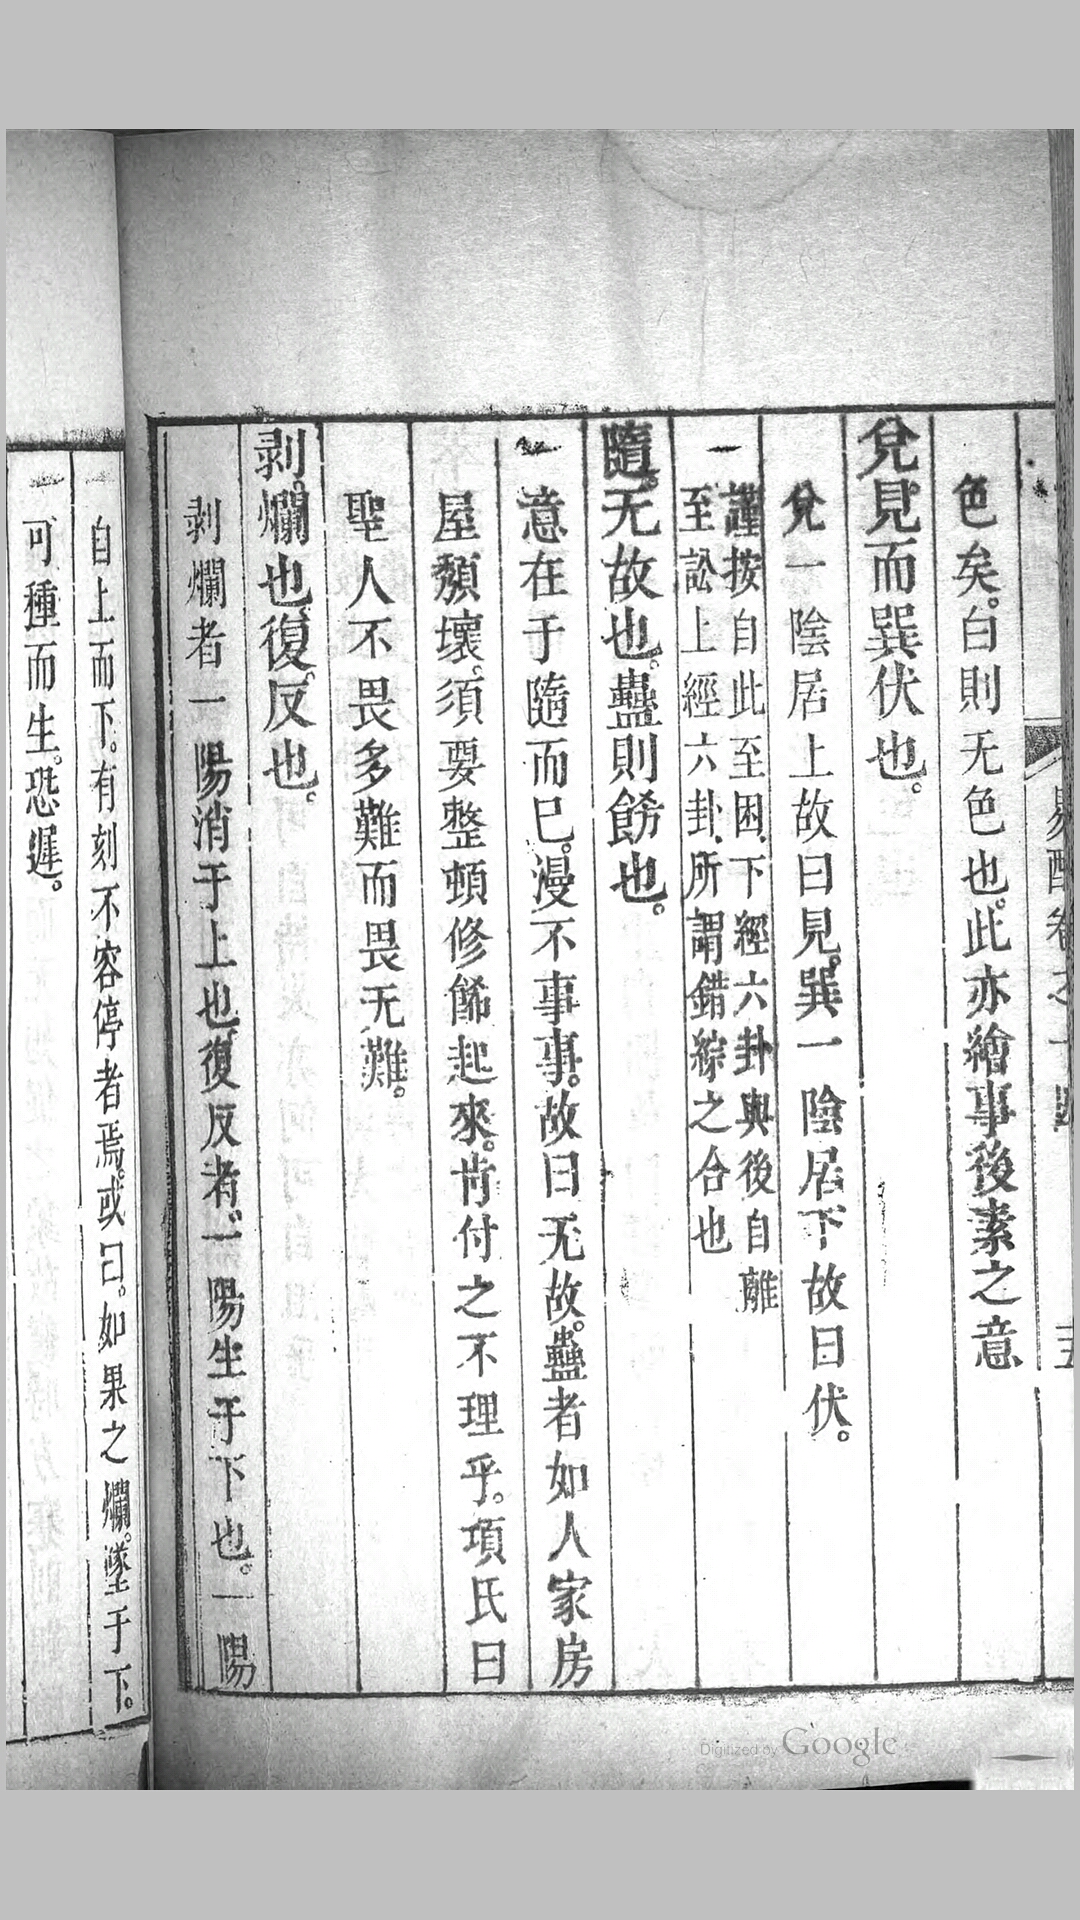 易酌卷之十
五
色矣。白則无色也。此亦繪事後素之意
兌見而巽伏也。
兌一陰居上故曰見。巽一陰居下故曰伏。
謹按自此至困、下經六卦與後自離
至訟上經六卦、所謂錯綜之合也
隨。无故也。蠱則飭也。
意在于隨而已。漫不事事。故曰无故。蠱者如人家房
屋頹壞。須要整頓修飾起來。肯付之不理乎。項氏曰
聖人不畏多難而畏无難。
剥。爛也。復。反也。
剥爛者一陽消于上也。復反者一陽生于下也。一陽
自上而下。有刻不容停者焉。或曰。如果之爛。墜于下。
可種而生。恐遲。
Digitized by Google